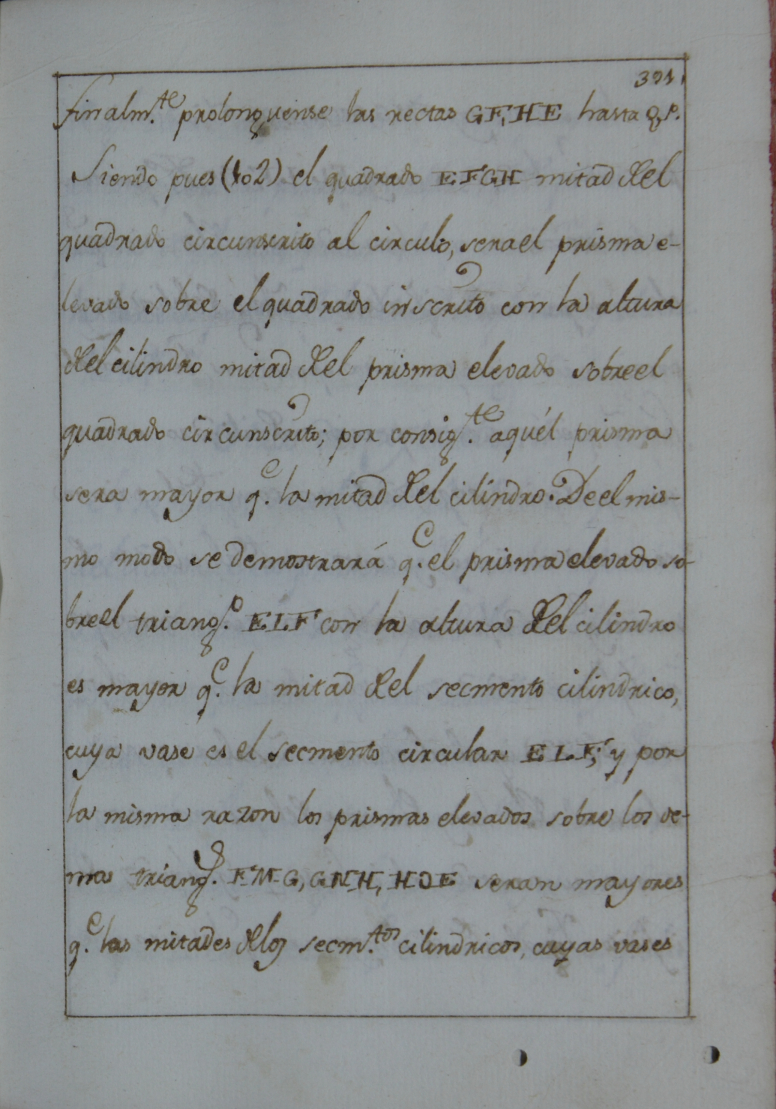 391.
finalm.te prolonguense las rectas GF, HE hasta q P.
Siendo pues (102) el quadrado EFGH mitad del
quadrado circunscrito al circulo, sera el prisma e-
levado sobre el quadrado inscrito con la altura
del cilindro mitad del prisma elevado sobre el
quadrado circunscrito; por consig.te aquél prisma
sera mayor q.e la mitad del cilindro. De el mis-
mo modo se demostrará q.e el prisma elevado so-
bre el triang.o ELF con la altura del cilindro
es mayor q.e la mitad del secmento cilindrico,
cuya vase es el secmento circular ELF; y por
la misma razon los prismas elevados sobre los de-
mas triang.s FMG, GNH, HOE seran mayores
q.e las mitades de los secm.tos cilindricos, cuyas vases